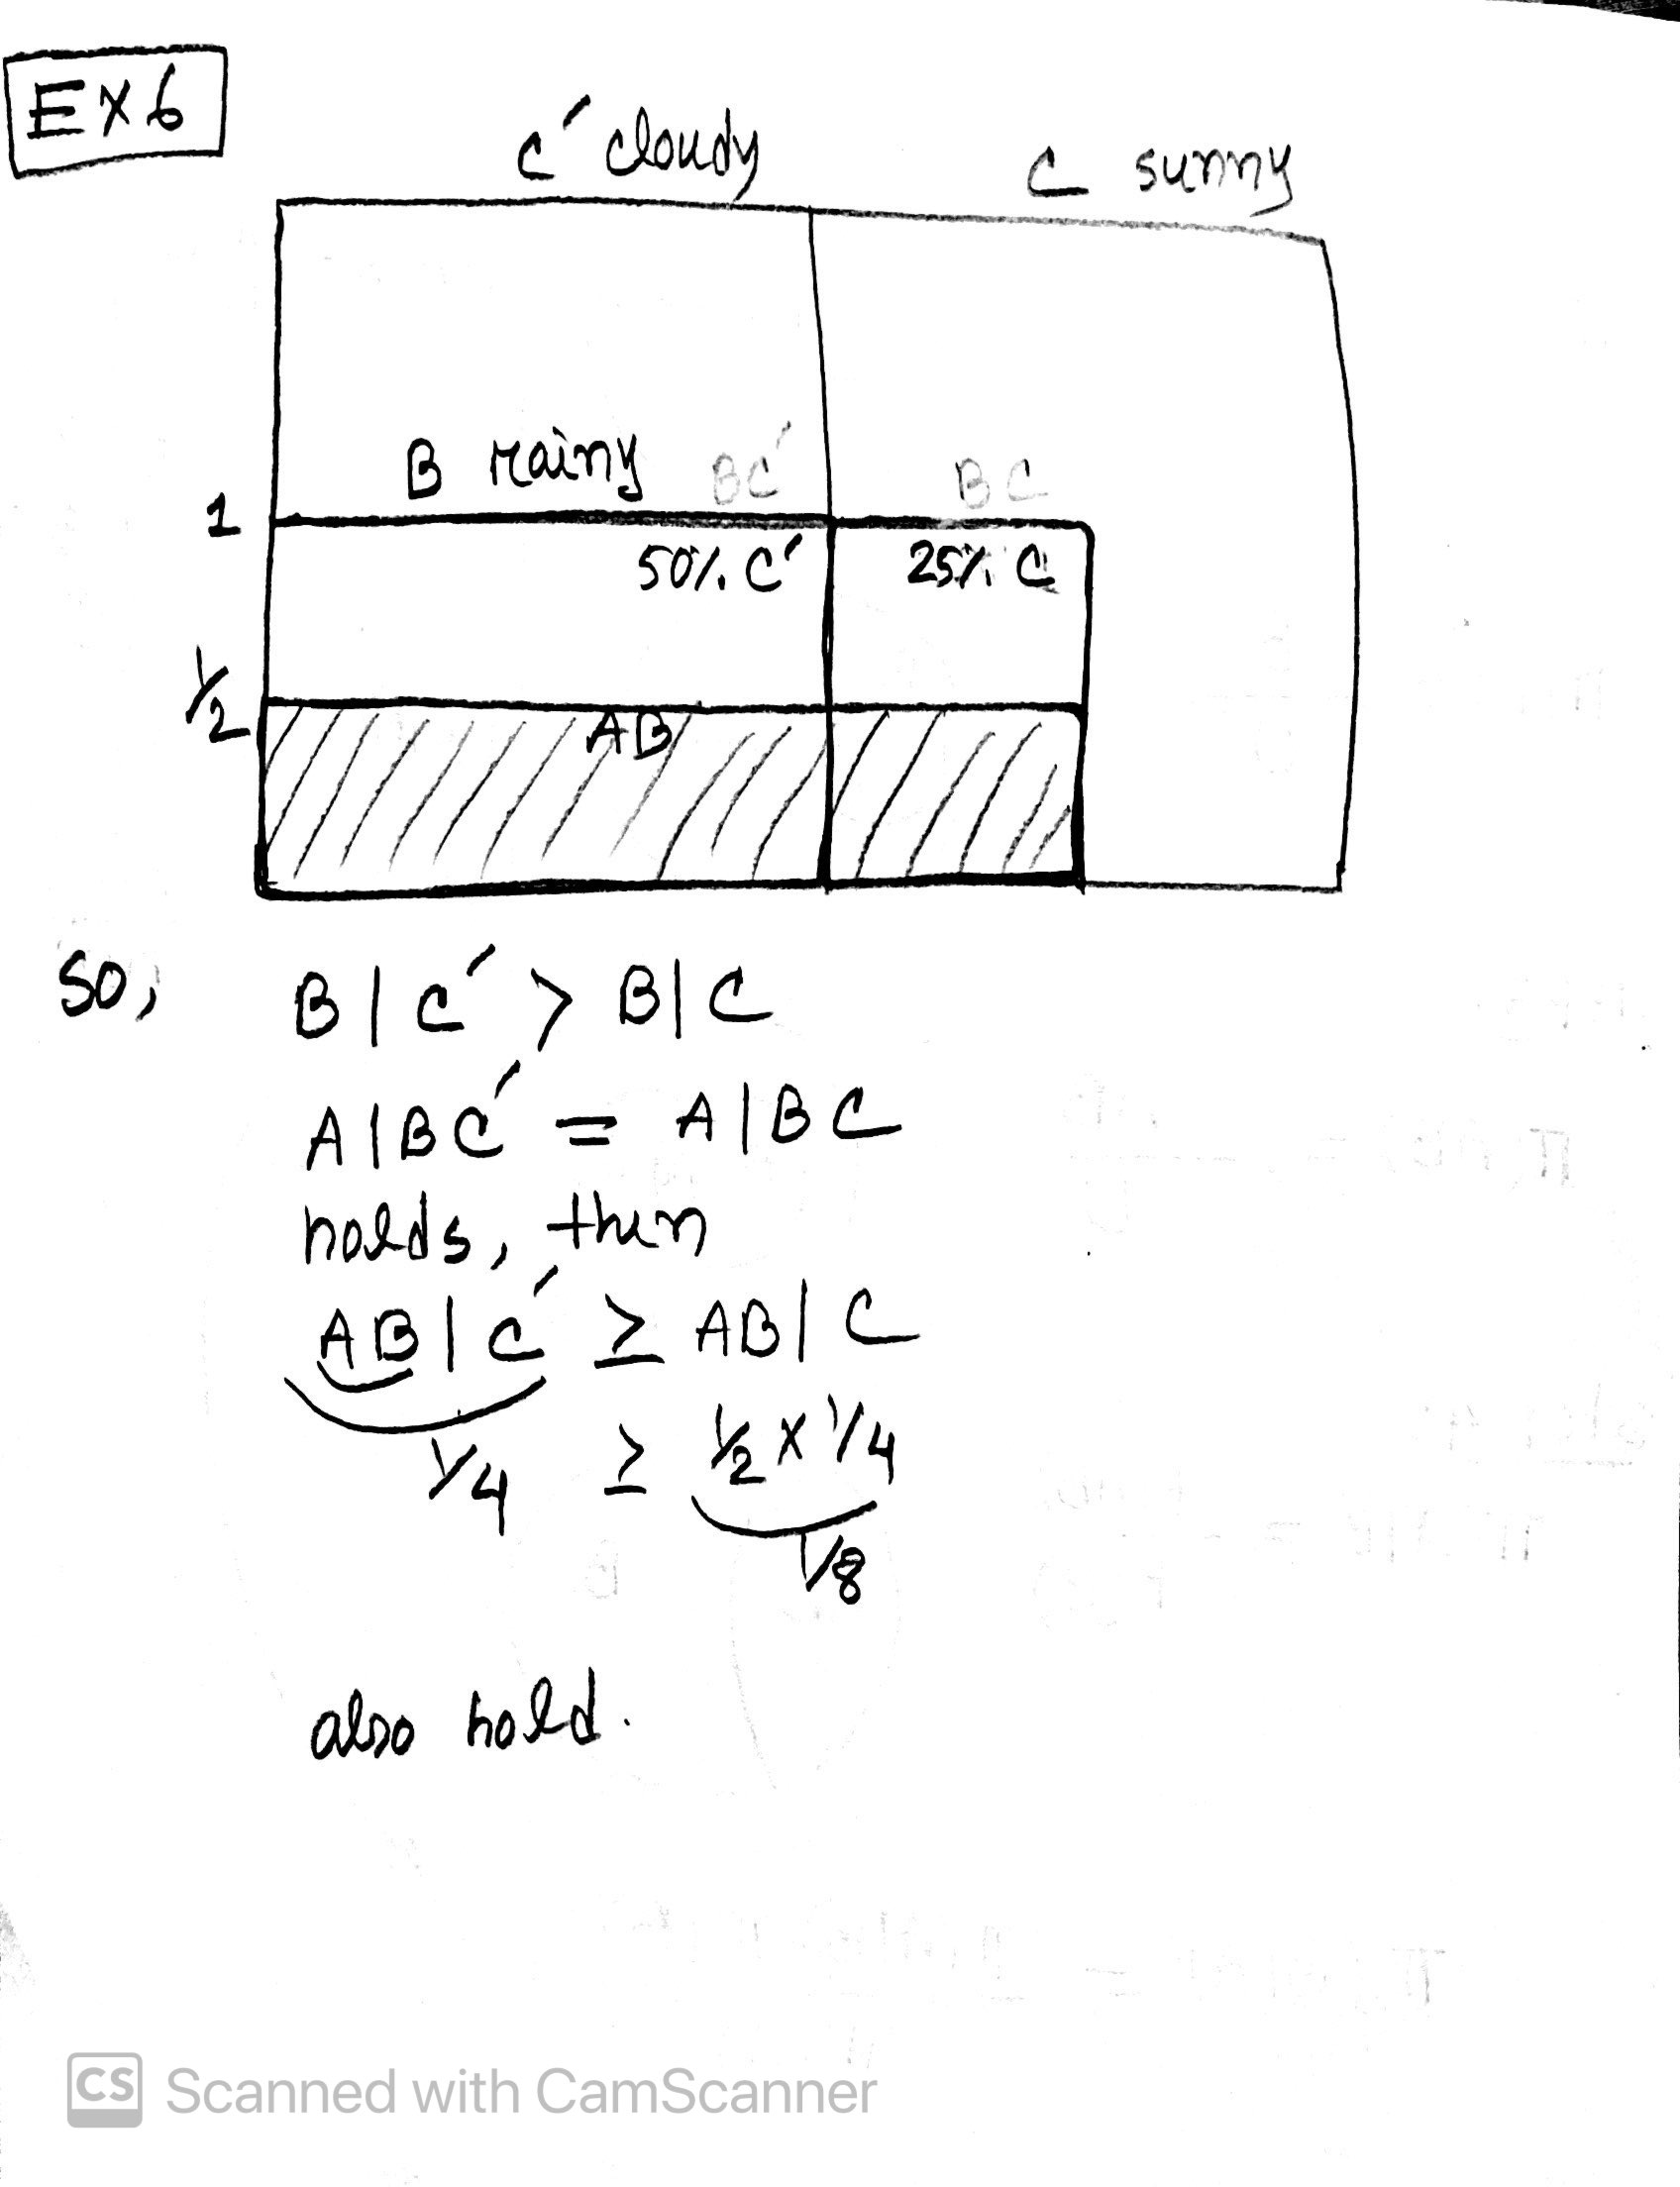 EX6
C′ cloudy
C sunny
B rainy BC′
BC
1
50% C′
25% C
1/2
AB
So, B | C′ > B | C
A | BC′ = A | BC
holds, then
AB | C′ ≥ AB | C
1/4 ≥ 1/2 x 1/4
1/8
also hold.
CS Scanned with CamScanner